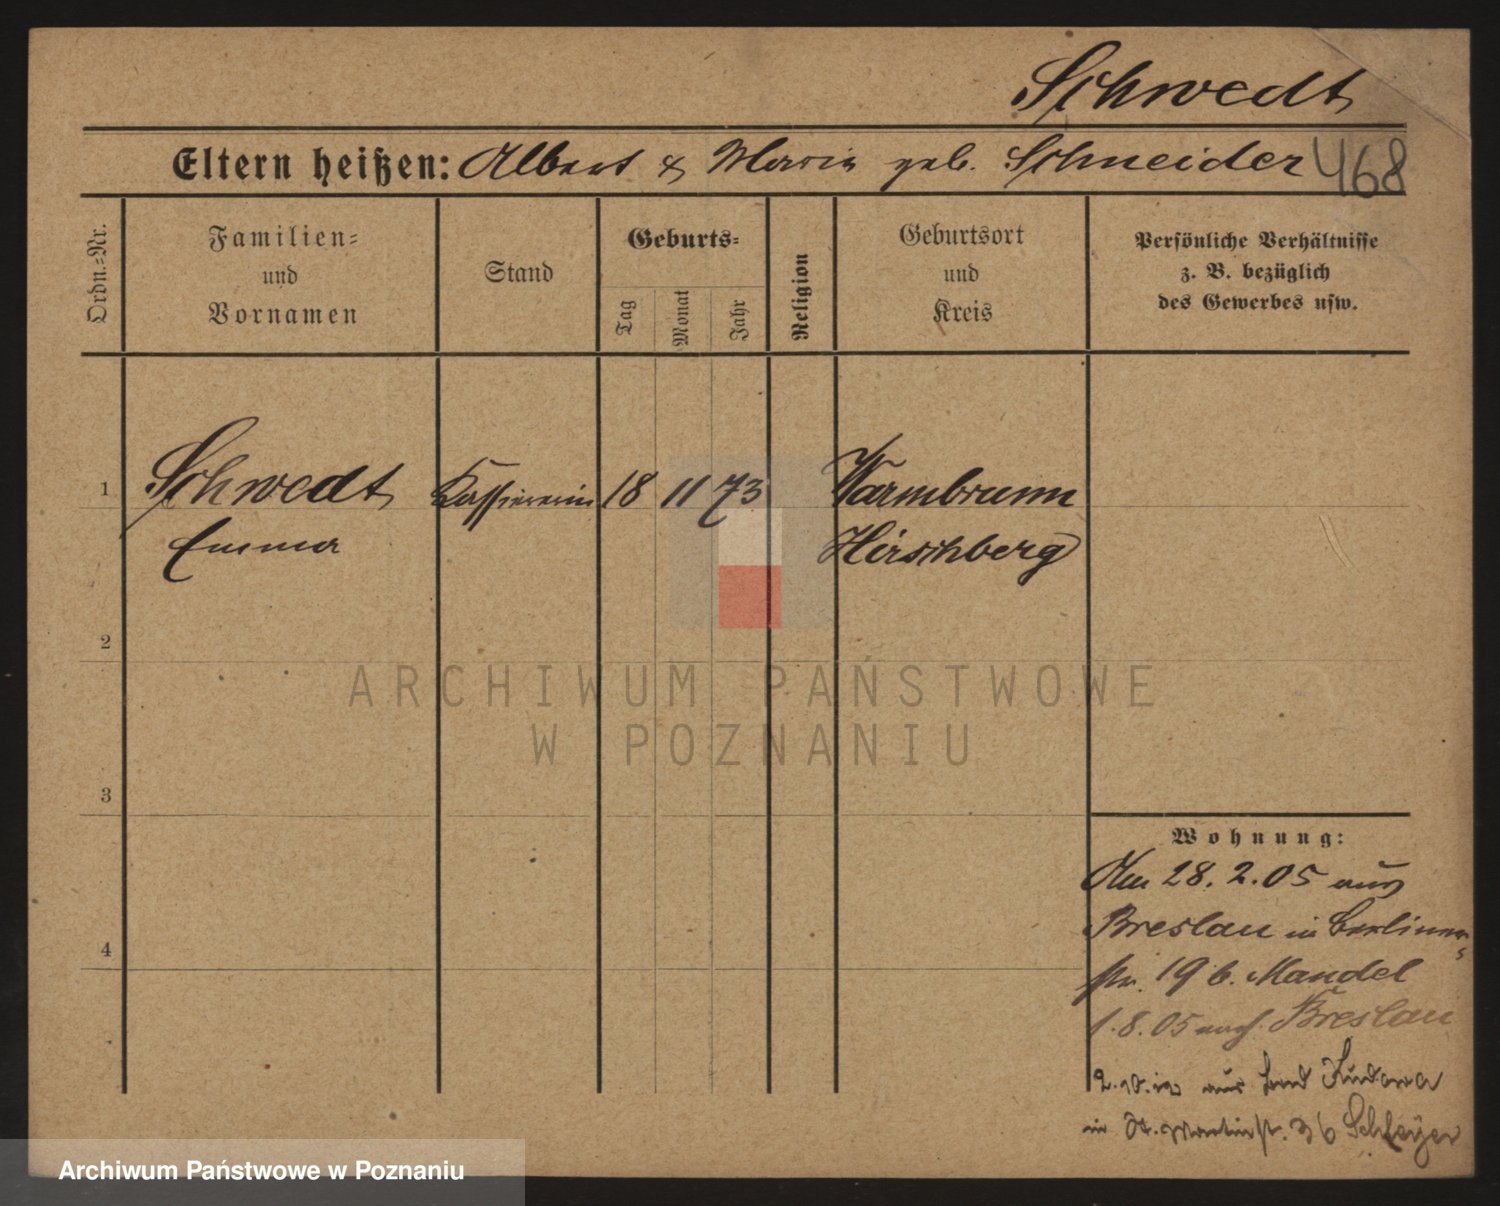 Schwedt
Eltern heißen: Albert & Maria geb. Schneider 468
Ordn.-Nr.
Familien-
und
Vornamen
Stand
Geburts-
Tag
Monat
Jahr
Religion
Geburtsort
und
Kreis
Persönliche Verhältnisse
z. B. bezüglich
des Gewerbes usw.
1 Schwedt Kassiererin 18 11 73 Warmbrunn
Emma Hirschberg
2
ARCHIWUM PAŃSTWOWE
W POZNANIU
3
Wohnung:
Am 28.2.05 aus
Breslau in Berliner-
4
str. 19 b. Mandel
1.8.05 nach Breslau
aus Bad Kudowa
in St. Martinstr. 36 Schleyer
Archiwum Państwowe w Poznaniu